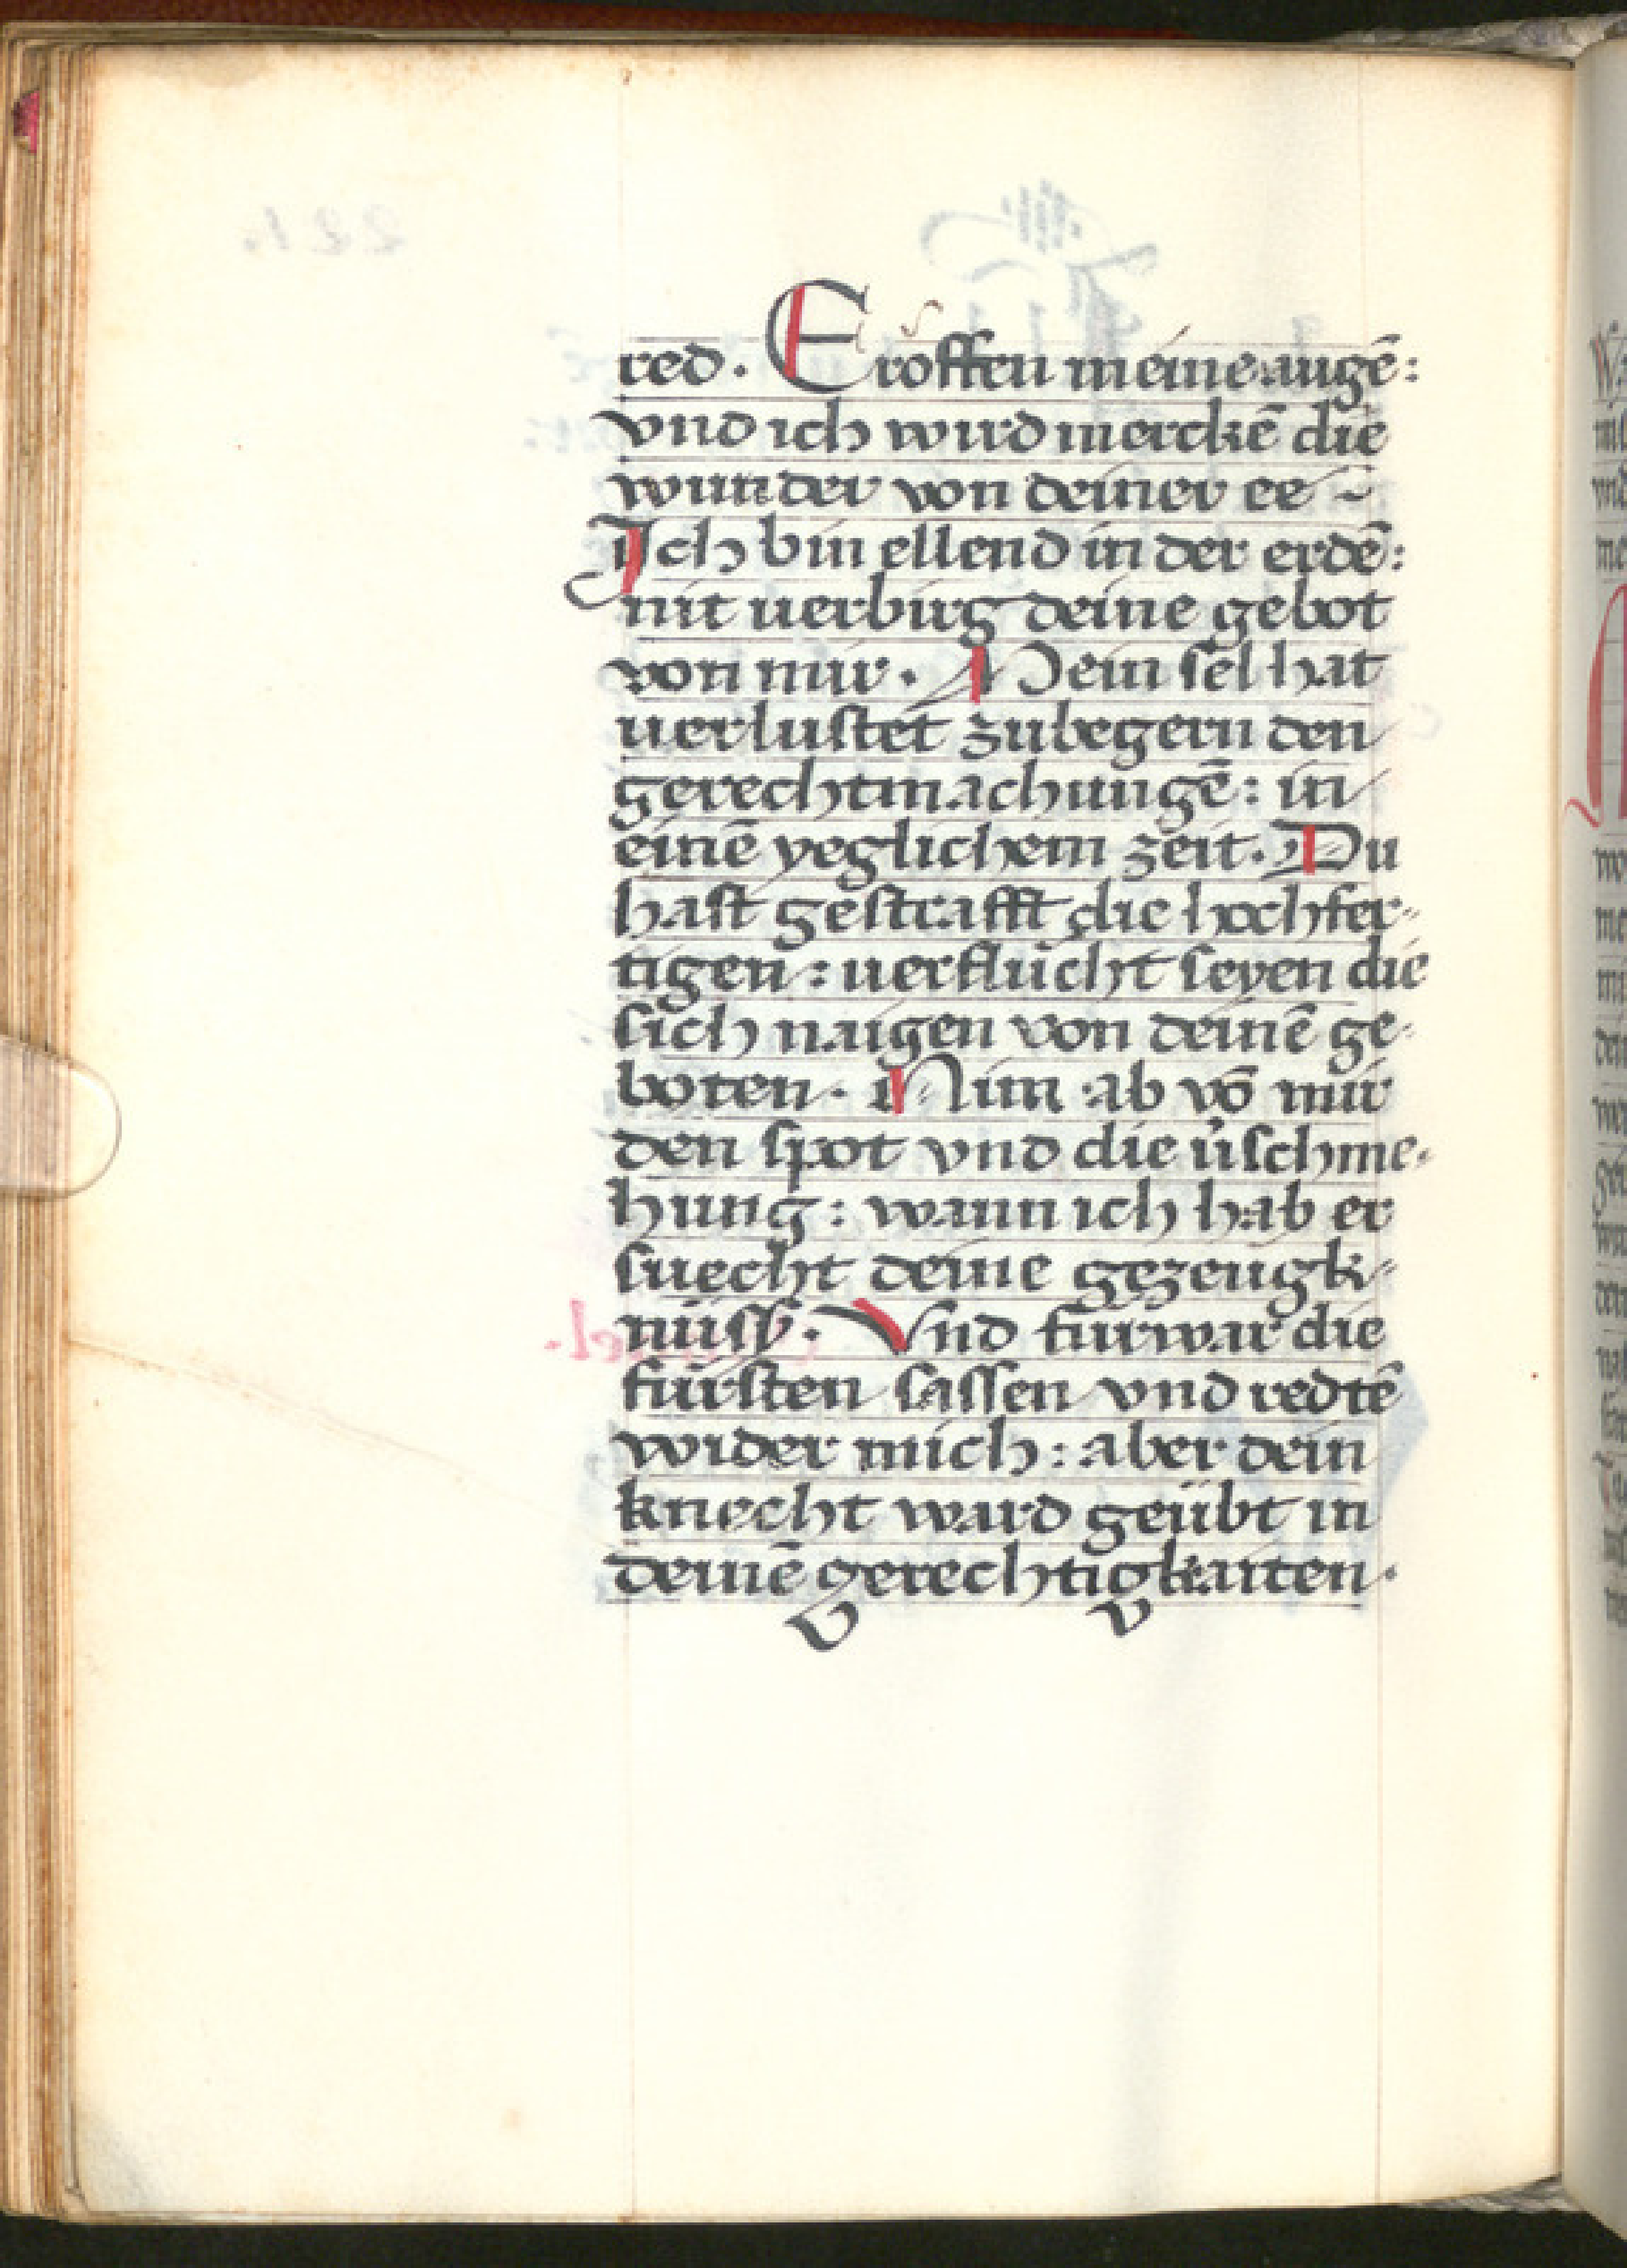 red. Eroffen meine augē:
vnd ich wird merckē die
wunder von deiner ee ~
Ich bin ellend in der erdē:
nit uerbirg deine gebot
von mir. Mein sel hat
uerlustet zubegern den
gerechtmachungē: in
einē yeglichem zeit. Du
hast gestrafft die hochfer-
tigen: uerflucht seyen die
sich naigen von deinē ge-
boten. Nim ab vō mir
den spot vnd die u̕schme-
hung: wann ich hab er
suecht deine gezeugk-
nüsß. Vnd fürwar die
fürsten sassen vnd redtē
wider mich: aber dein
knecht ward geübt in
deinē gerechtigkaiten.